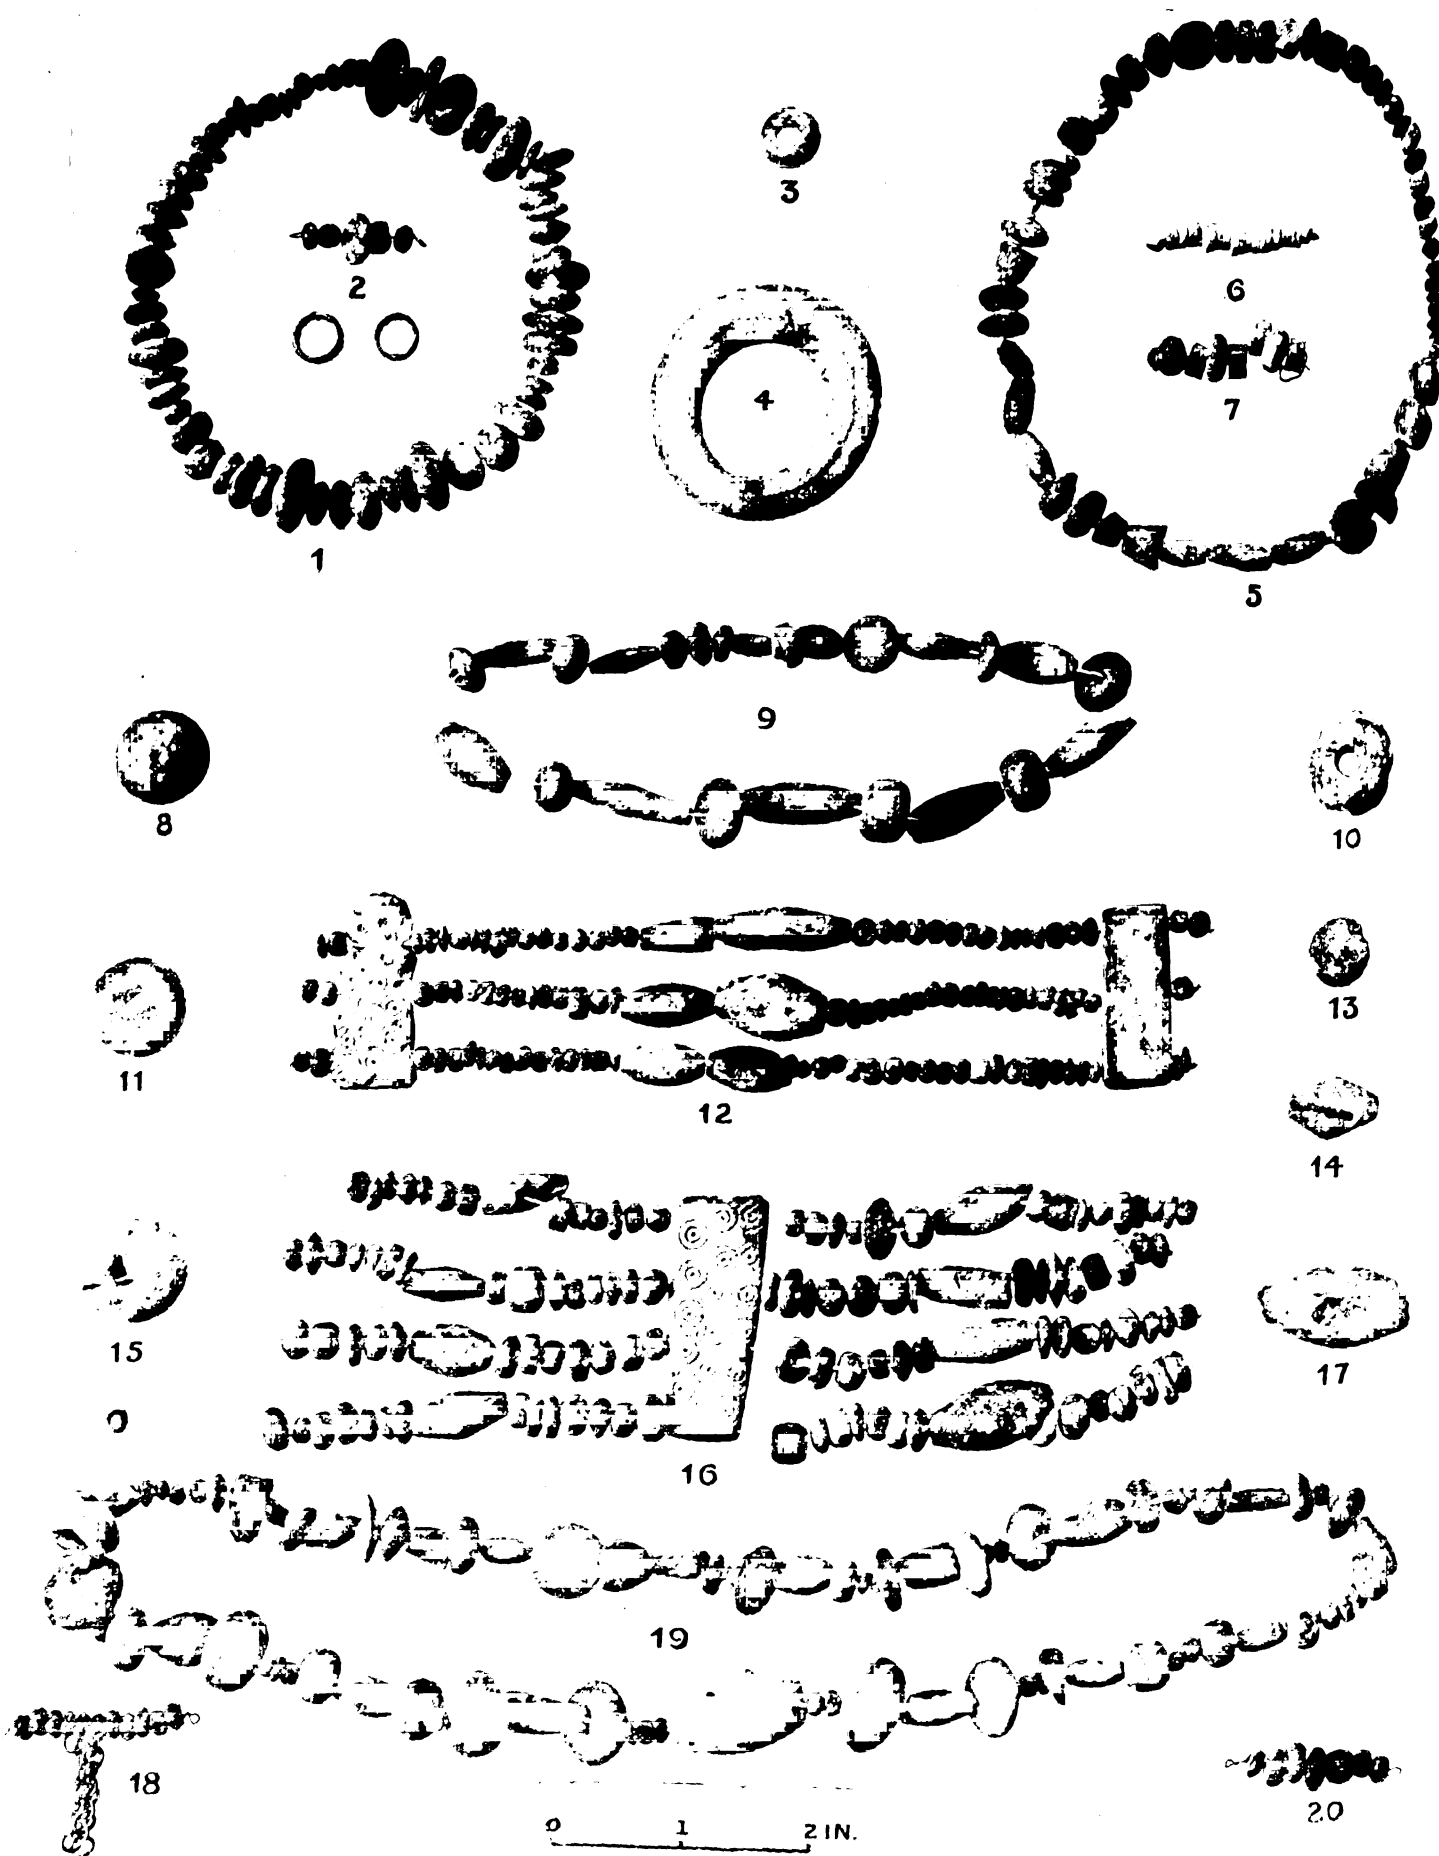 3
2
6
4
7
1
5
9
8
10
11
13
12
14
15
17
16
19
18
20
0 1 2 IN.